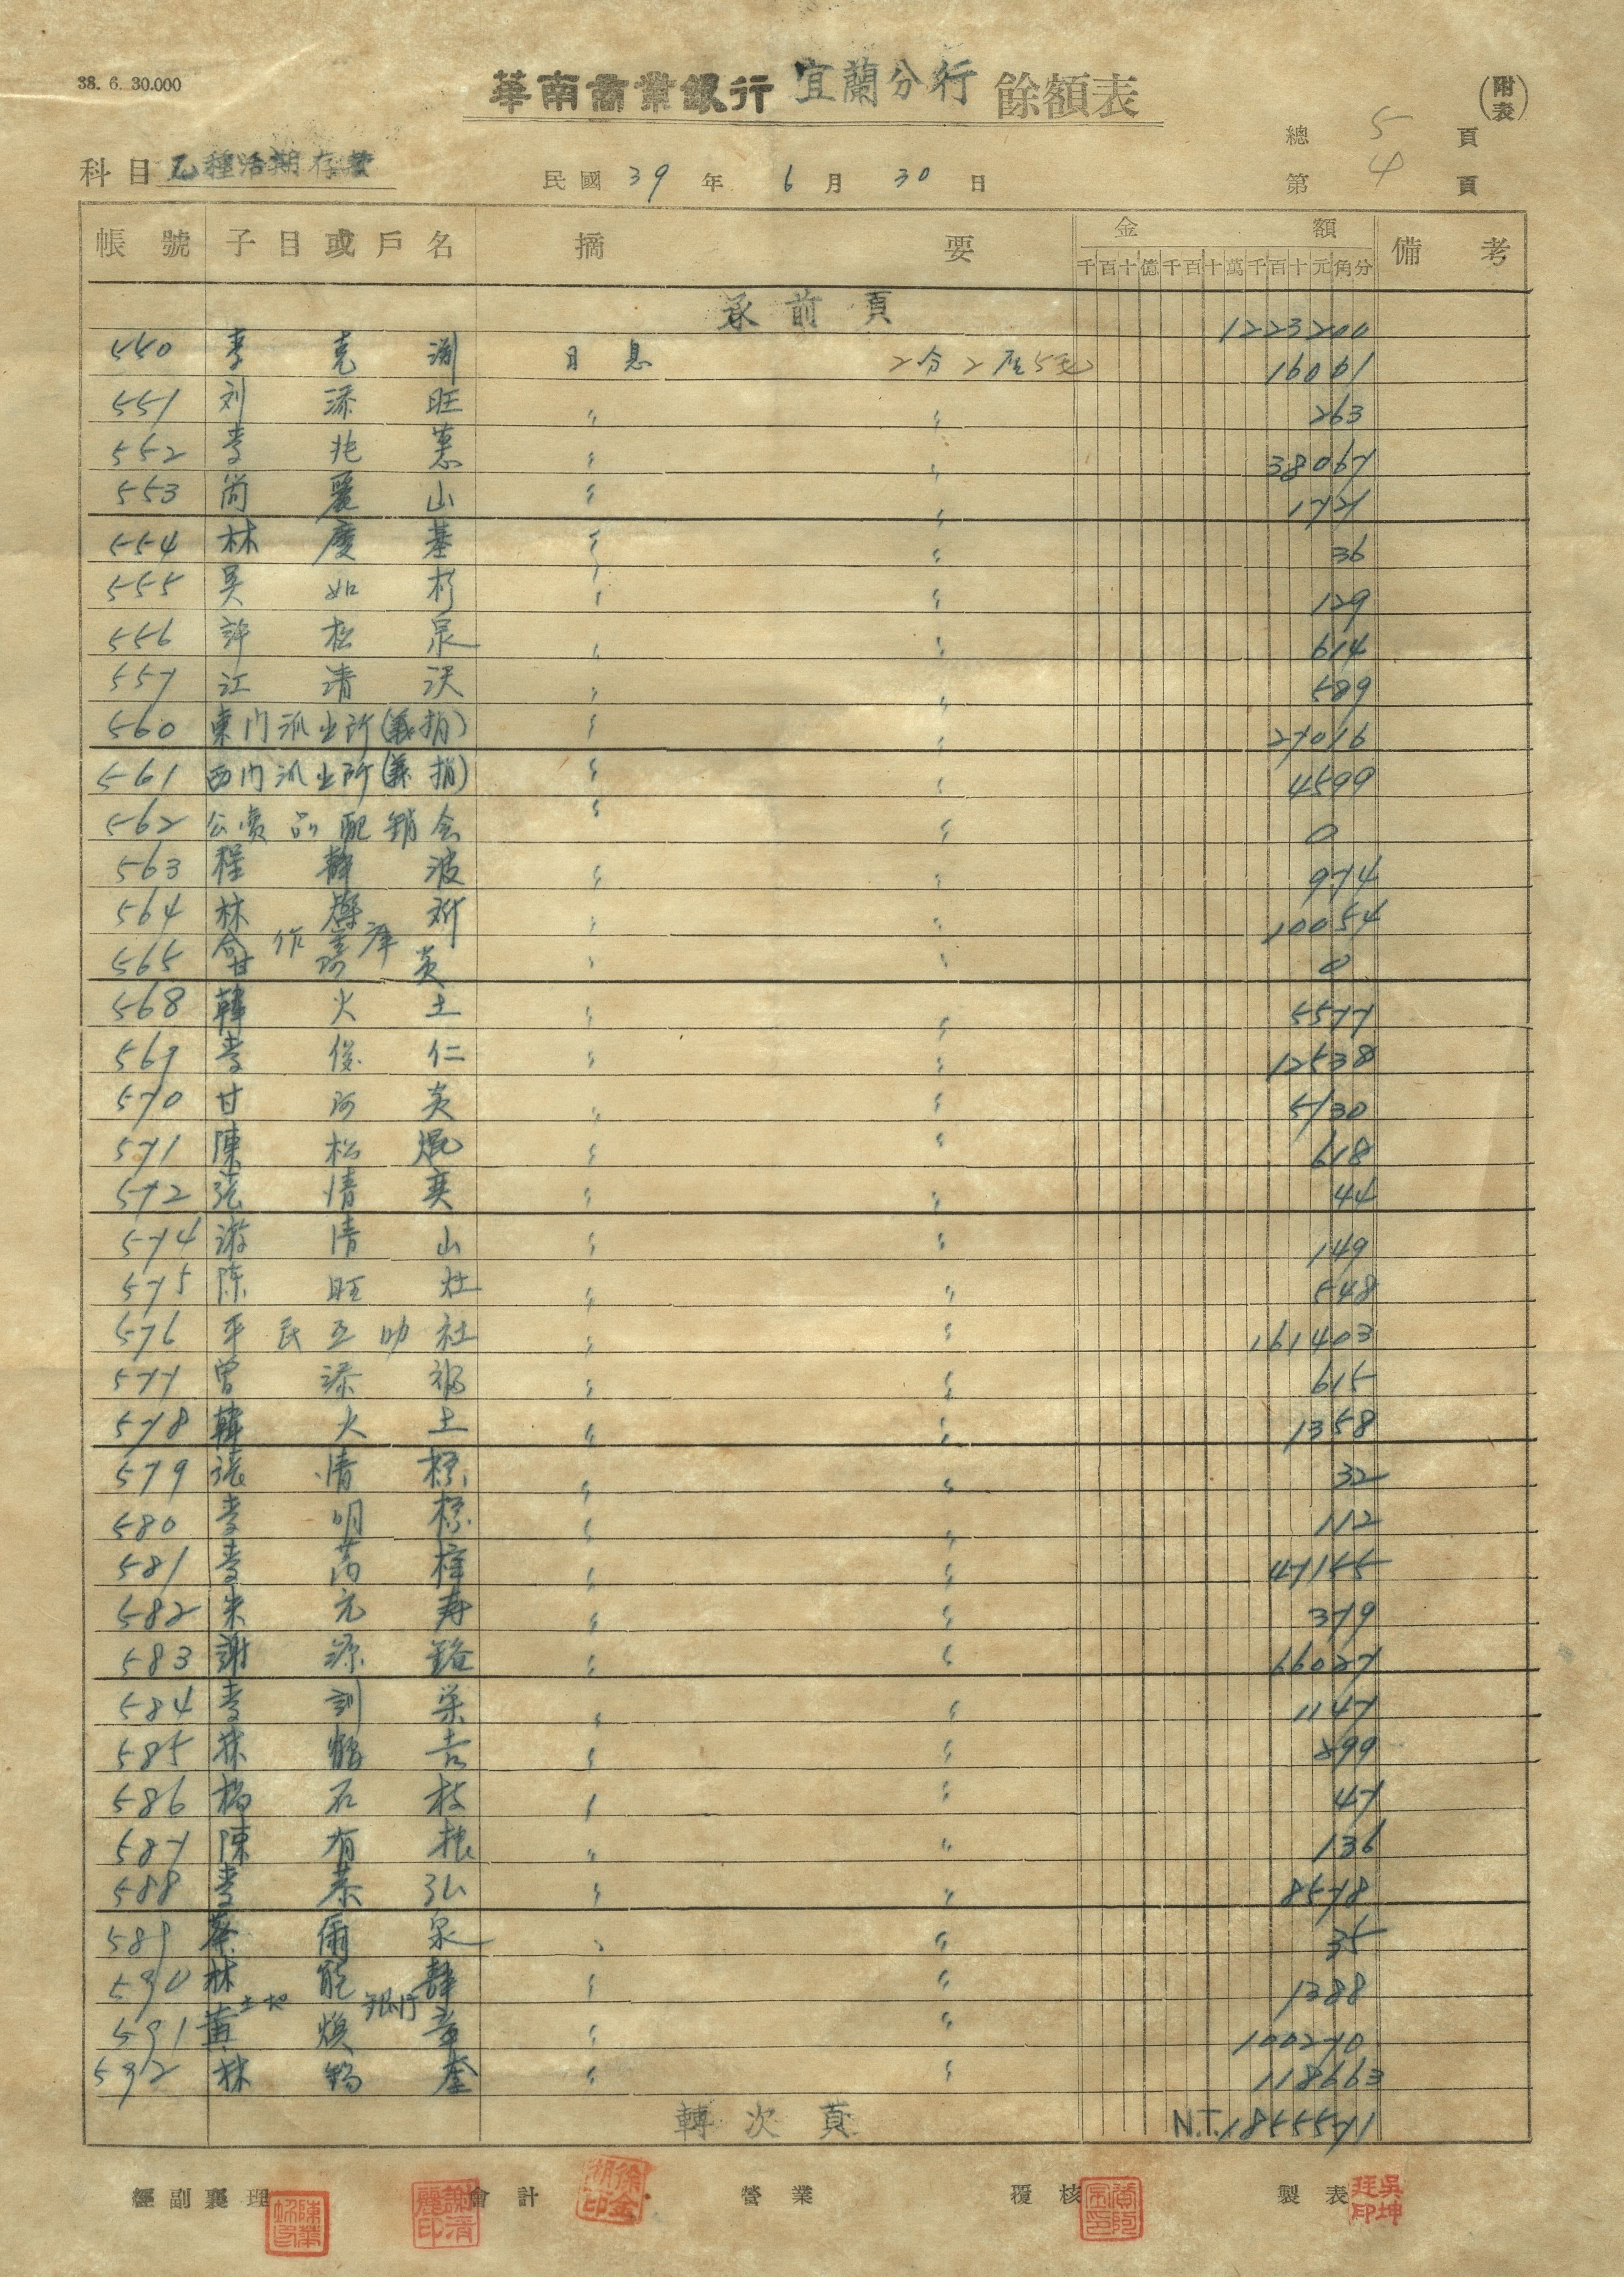 38. 6. 30.000
華南商業銀行 宜蘭分行 餘額表
(附表)
總 5 頁
科目 乙種活期存款 民國 39 年 6 月 30 日 第 4 頁
帳號 子目或戶名 摘要 金額 備考
千百十億千百十萬千百十元角分
承前頁 1223200
550 李克 日息 2分2厘5毛 16061
551 刘添旺 〃 〃 263
552 李兆蕙 〃 〃 38067
553 尚麗山 〃 〃 1727
554 林慶基 〃 〃 36
555 吳如杉 〃 〃 129
556 許松泉 〃 〃 614
557 江清 〃 〃 589
560 東門派出所(義捐) 〃 〃 27016
561 西門派出所(義捐) 〃 〃 4599
562 公賣品配銷会 〃 〃 0
563 程 波 〃 〃 974
564 林 〃 〃 10054
合作金庫
565 甘阿炎 〃 〃 0
568 韓火土 〃 〃 5577
569 李俊仁 〃 〃 12538
570 甘阿炎 〃 〃 5730
571 陳松焜 〃 〃 618
572 張情 〃 〃 44
574 游清山 〃 〃 149
575 陈旺灶 〃 〃 548
576 平民互助社 〃 〃 161403
577 曾添福 〃 〃 615
578 韓火土 〃 〃 1358
579 張清標 〃 〃 32
580 李明標 〃 〃 112
581 李 〃 〃 47155
582 朱元寿 〃 〃 379
583 謝源 〃 〃 66027
584 李訓 〃 〃 1147
585 林鶴吉 〃 〃 899
586 楊石枝 〃 〃 47
587 陳有根 〃 〃 136
588 李泰弘 〃 〃 8578
589 蔡爾泉 〃 〃 35
590 林能静 〃 〃 1388
土地銀行
591 黃煥章 〃 〃 100270
592 林錫奎 〃 〃 118663
轉次頁 N.T.1855571
經副襄理 會計 營業 覆核 製表
謝清麗印
徐金湖印
吳坤珏印